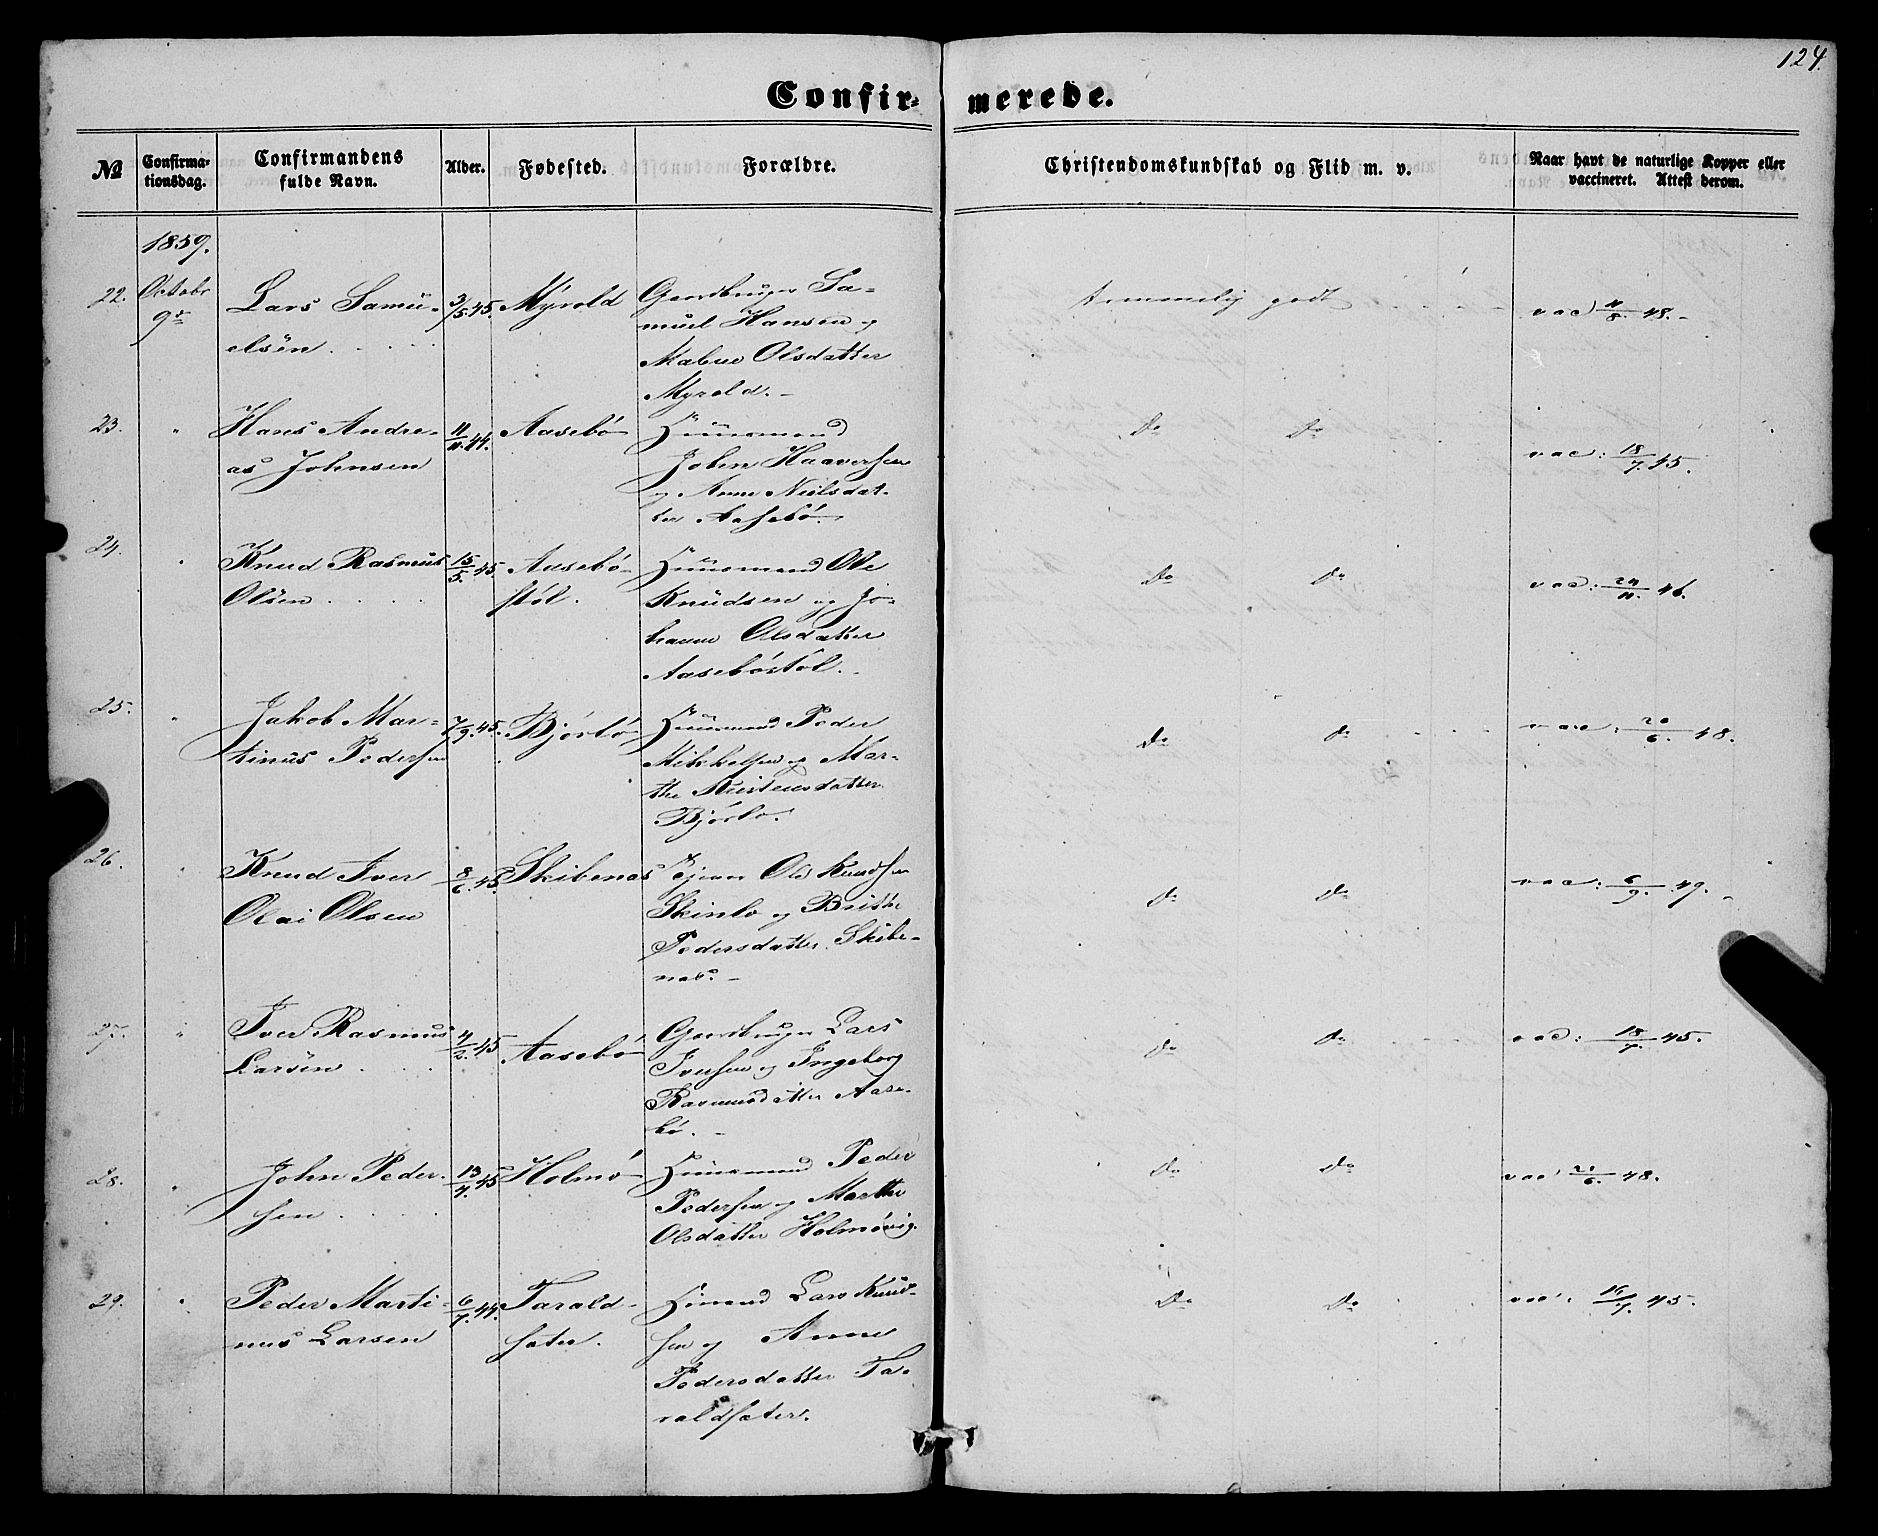 124.
Confir-
merede.
No
Confirma-
tionsdag.
Confirmandens
fulde Navn.
Alder.
Fødested.
Forældre.
Christendomskundskab og Flid m. v.
Naar havt de naturlige Kopper eller
vaccineret. Attest derom.
1859.
22.
Octobr
9de
Lars Samu-
elsen
3/5 45.
Myrold
Gaardbruger Sa-
muel Hansen og
Olsdatter
Myrold.
temmelig godt
vac 11/8. 48.
23.
"
Hans Andre-
as Johnsen
11/11. 44.
Aasebø
Huusmand
John Haaversen
og Anne Nielsdat-
ter Aasebø.
Do Do
vac: 18/7. 45.
24.
"
Knud Rasmus
Olsen
15/5. 45
Aasebø-
støl.
Huusmand Ole
Knudsen og Jo-
hanne Olsdatter
Aasebøstøl.
Do Do
vac: 24/11. 46.
25.
"
Jakob Mar-
tinus Pedersen
7/9. 45.
Bjørlo
Huusmand Peder
Mikkelsen og Mar-
the
Bjørlo.
Do Do
vac: 20/6. 48.
26.
"
Knud Iver
Olai Olsen
8/6. 45.
Skibenes
Ole Knudsen
Skinlo og Brithe
Pedersdatter Skibe-
nes.
Do Do
vac: 6/9. 49.
27.
"
Iver Rasmus
Larsen
4/2. 45
Aasebø
Gaardbruger Lars
Iversen og Ingeborg
Rasmusdatter Aase-
bø.
Do Do
vac: 18/7. 45.
28.
"
John Peder-
sen
13/7. 45
Holmø
Huusmand Peder
Pedersen og Marthe
Olsdatter Holmøvig.
Do Do
vac 20/6. 48.
29.
"
Peder Marti-
nus Larsen
6/7. 44.
Tarald-
sater.
Lars Knud-
sen og Anne
Pedersdatter Ta-
raldsater.
Do Do
vac: 16/7. 45.